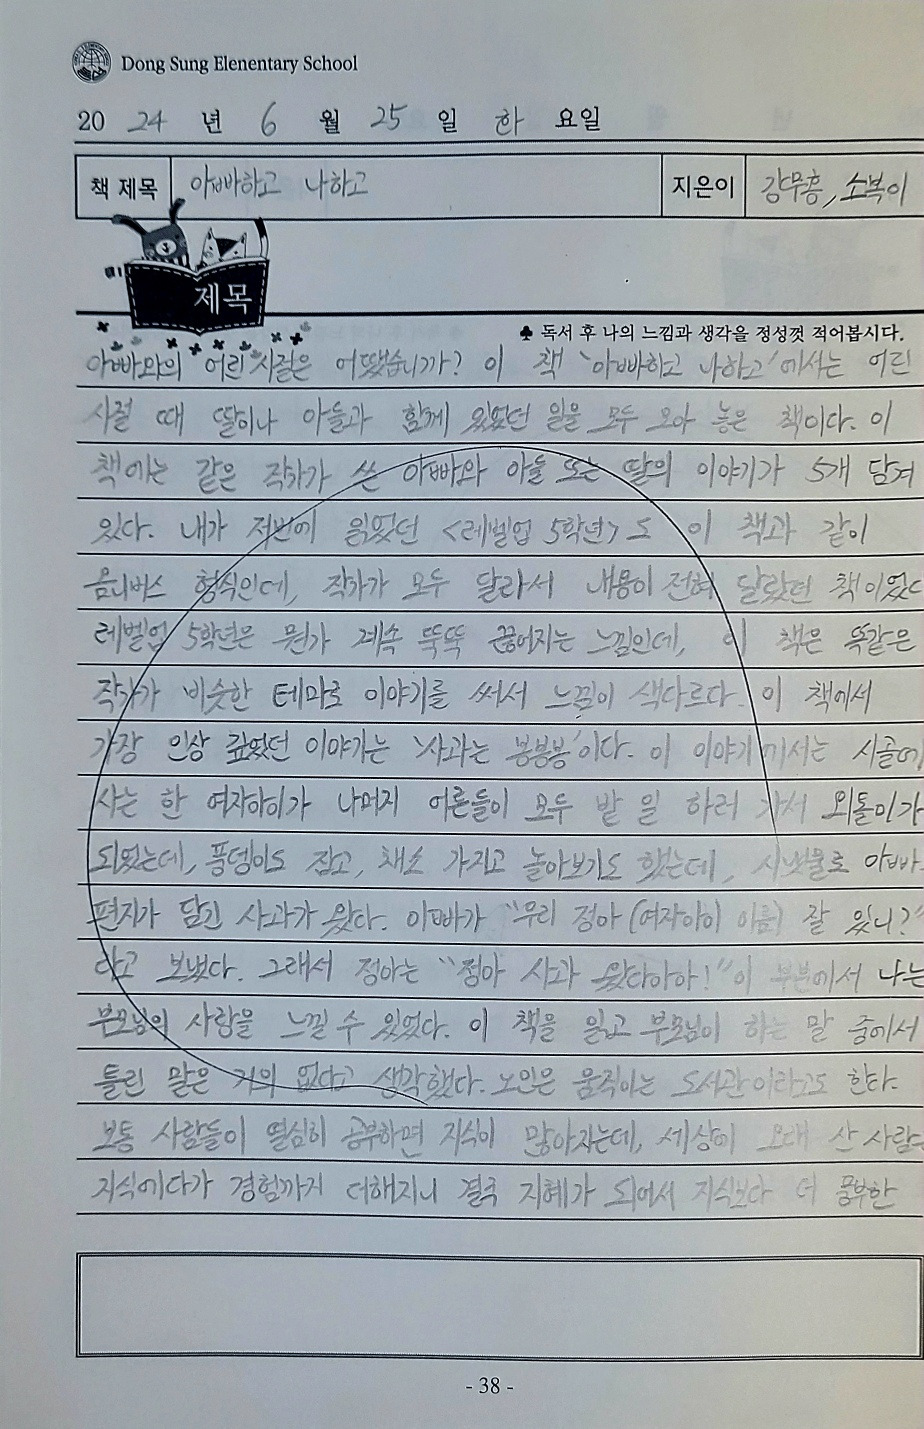 Dong Sung Elenentary School
20 24 년 6 월 25 일 화 요일
책 제목 아빠하고 나하고 지은이 강무홍, 소복이
제목
♣ 독서 후 나의 느낌과 생각을 정성껏 적어봅시다.
아빠와의 어린 시절은 어땠습니까? 이 책 '아빠하고 나하고'에서는 어린
시절 때 딸이나 아들과 함께 있었던 일을 모두 모아 놓은 책이다. 이
책에는 같은 작가가 쓴 아빠와 아들 또는 딸의 이야기가 5개 담겨
있다. 내가 저번에 읽었던 <레벨업 5학년>도 이 책과 같이
옴니버스 형식인데, 작가가 모두 달라서 내용이 전혀 달랐던 책이었
레벨업 5학년은 뭔가 계속 뚝뚝 끊어지는 느낌인데, 이 책은 똑같은
작가가 비슷한 테마로 이야기를 써서 느낌이 색다르다. 이 책에서
가장 인상 깊었던 이야기는 '사과는 봉봉봉'이다. 이 이야기에서는 시골에
사는 한 여자아이가 나머지 어른들이 모두 밭 일 하러 가서 외톨이가
되었는데, 풍뎅이도 잡고, 채소 가지고 놀아보기도 했는데, 시냇물로 아빠
편지가 담긴 사과가 왔다. 아빠가 "우리 정아(여자아이 이름) 잘 있니?"
라고 보냈다. 그래서 정아는 "정아 사과 왔다아아!" 이 부분에서 나는
부모님의 사랑을 느낄 수 있었다. 이 책을 읽고 부모님이 하는 말 중에서
틀린 말은 거의 없다고 생각했다. 노인은 움직이는 도서관이라고도 한다.
보통 사람들이 열심히 공부하면 지식이 많아지는데, 세상에 오래 산 사람
지식에다가 경험까지 더해지니 결국 지혜가 되어서 지식보다 더 풍부한
- 38 -